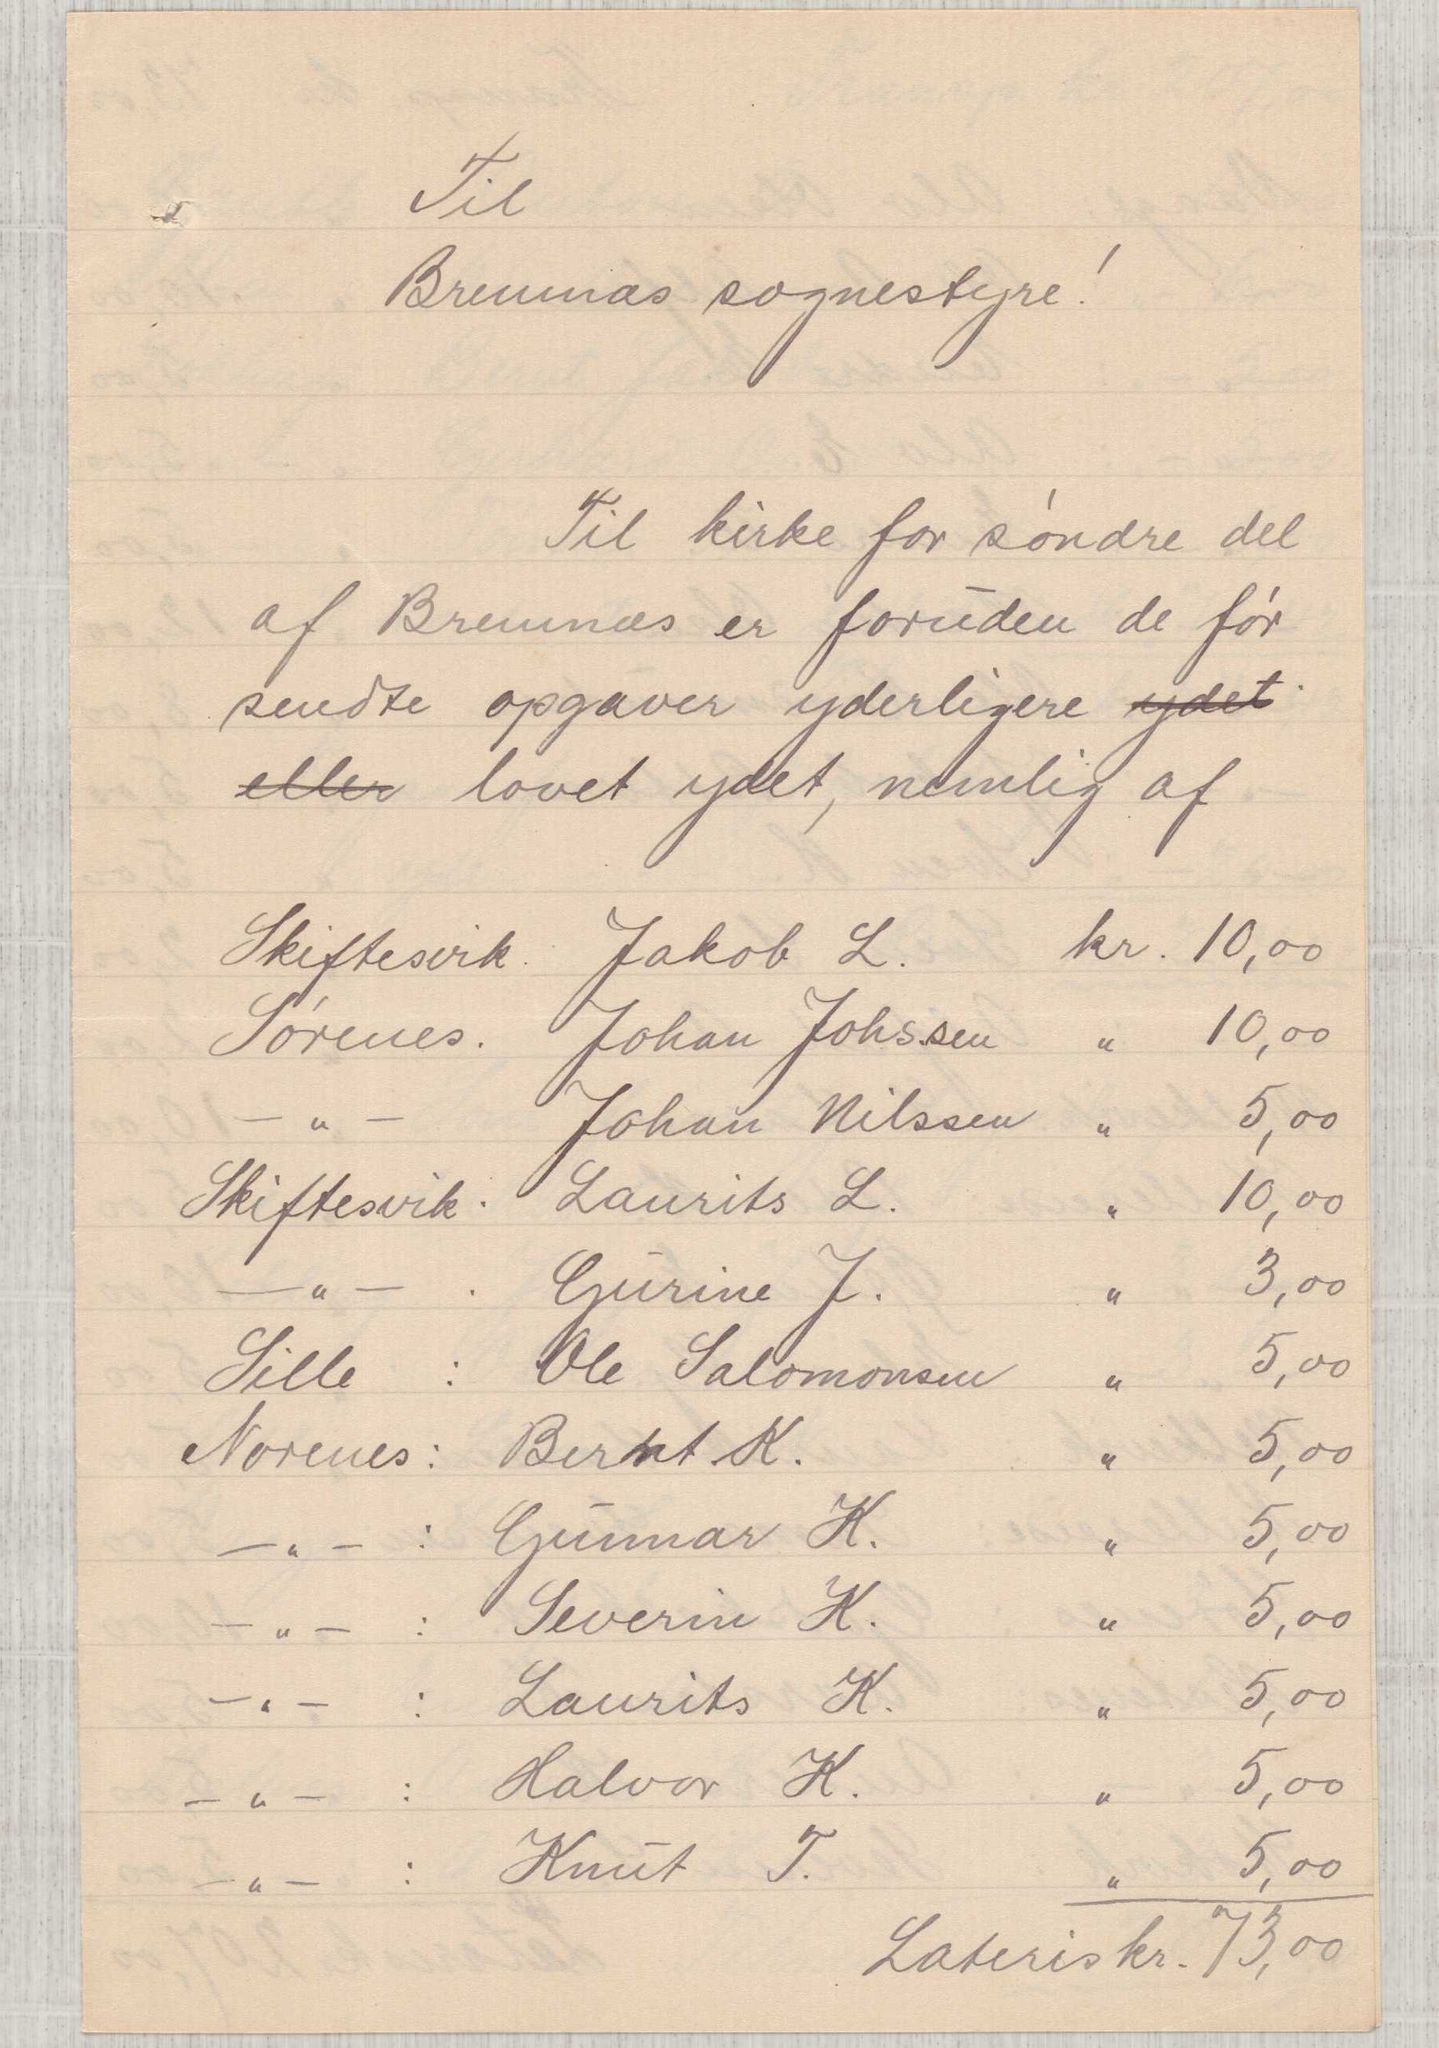 Til
Bremnæs sognestyre!
Til kirke for søndre del
af Bremnæs er foruden de før
sendte opgaver yderligere ydet
eller lovet ydet, nemlig af
Skiftesvik. Jakob L. kr. 10,00
Sørenes. Johan Johs.sen " 10,00
—"— Johan Nilssen " 5,00
Skiftesvik. Laurits L. " 10,00
—"— . Gurine J. " 3,00
Sille : Ole Salomonsen " 5,00
Norenes: Bernt K. " 5,00
—"— : Gunnar K. " 5,00
—"— : Severin K. " 5,00
—"— : Laurits K. " 5,00
—"— : Halvor K. " 5,00
—"— : Knut T. " 5,00
Lateris kr. 73,00